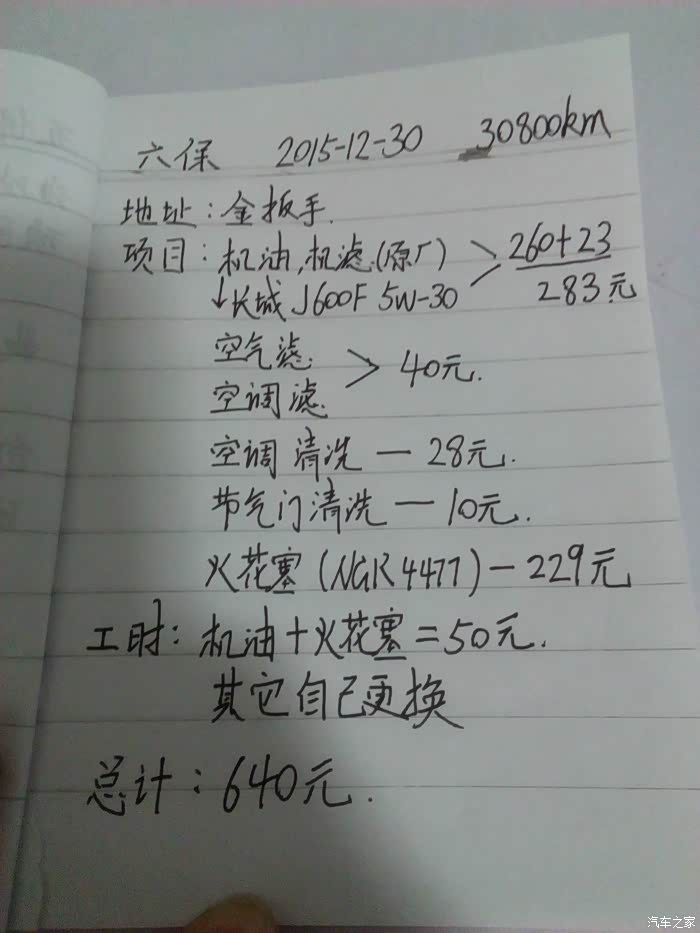 六保 2015-12-30 30800km
地址：金扳手.
项目：机油,机滤.(原厂) > 260+23
↓长城 J600F 5W-30 283元
空气滤.
空调滤. > 40元.
空调清洗 — 28元.
节气门清洗 — 10元.
火花塞 (NGR 4477) — 229元
工时：机油+火花塞=50元.
其它自己更换
总计：640元.
汽车之家